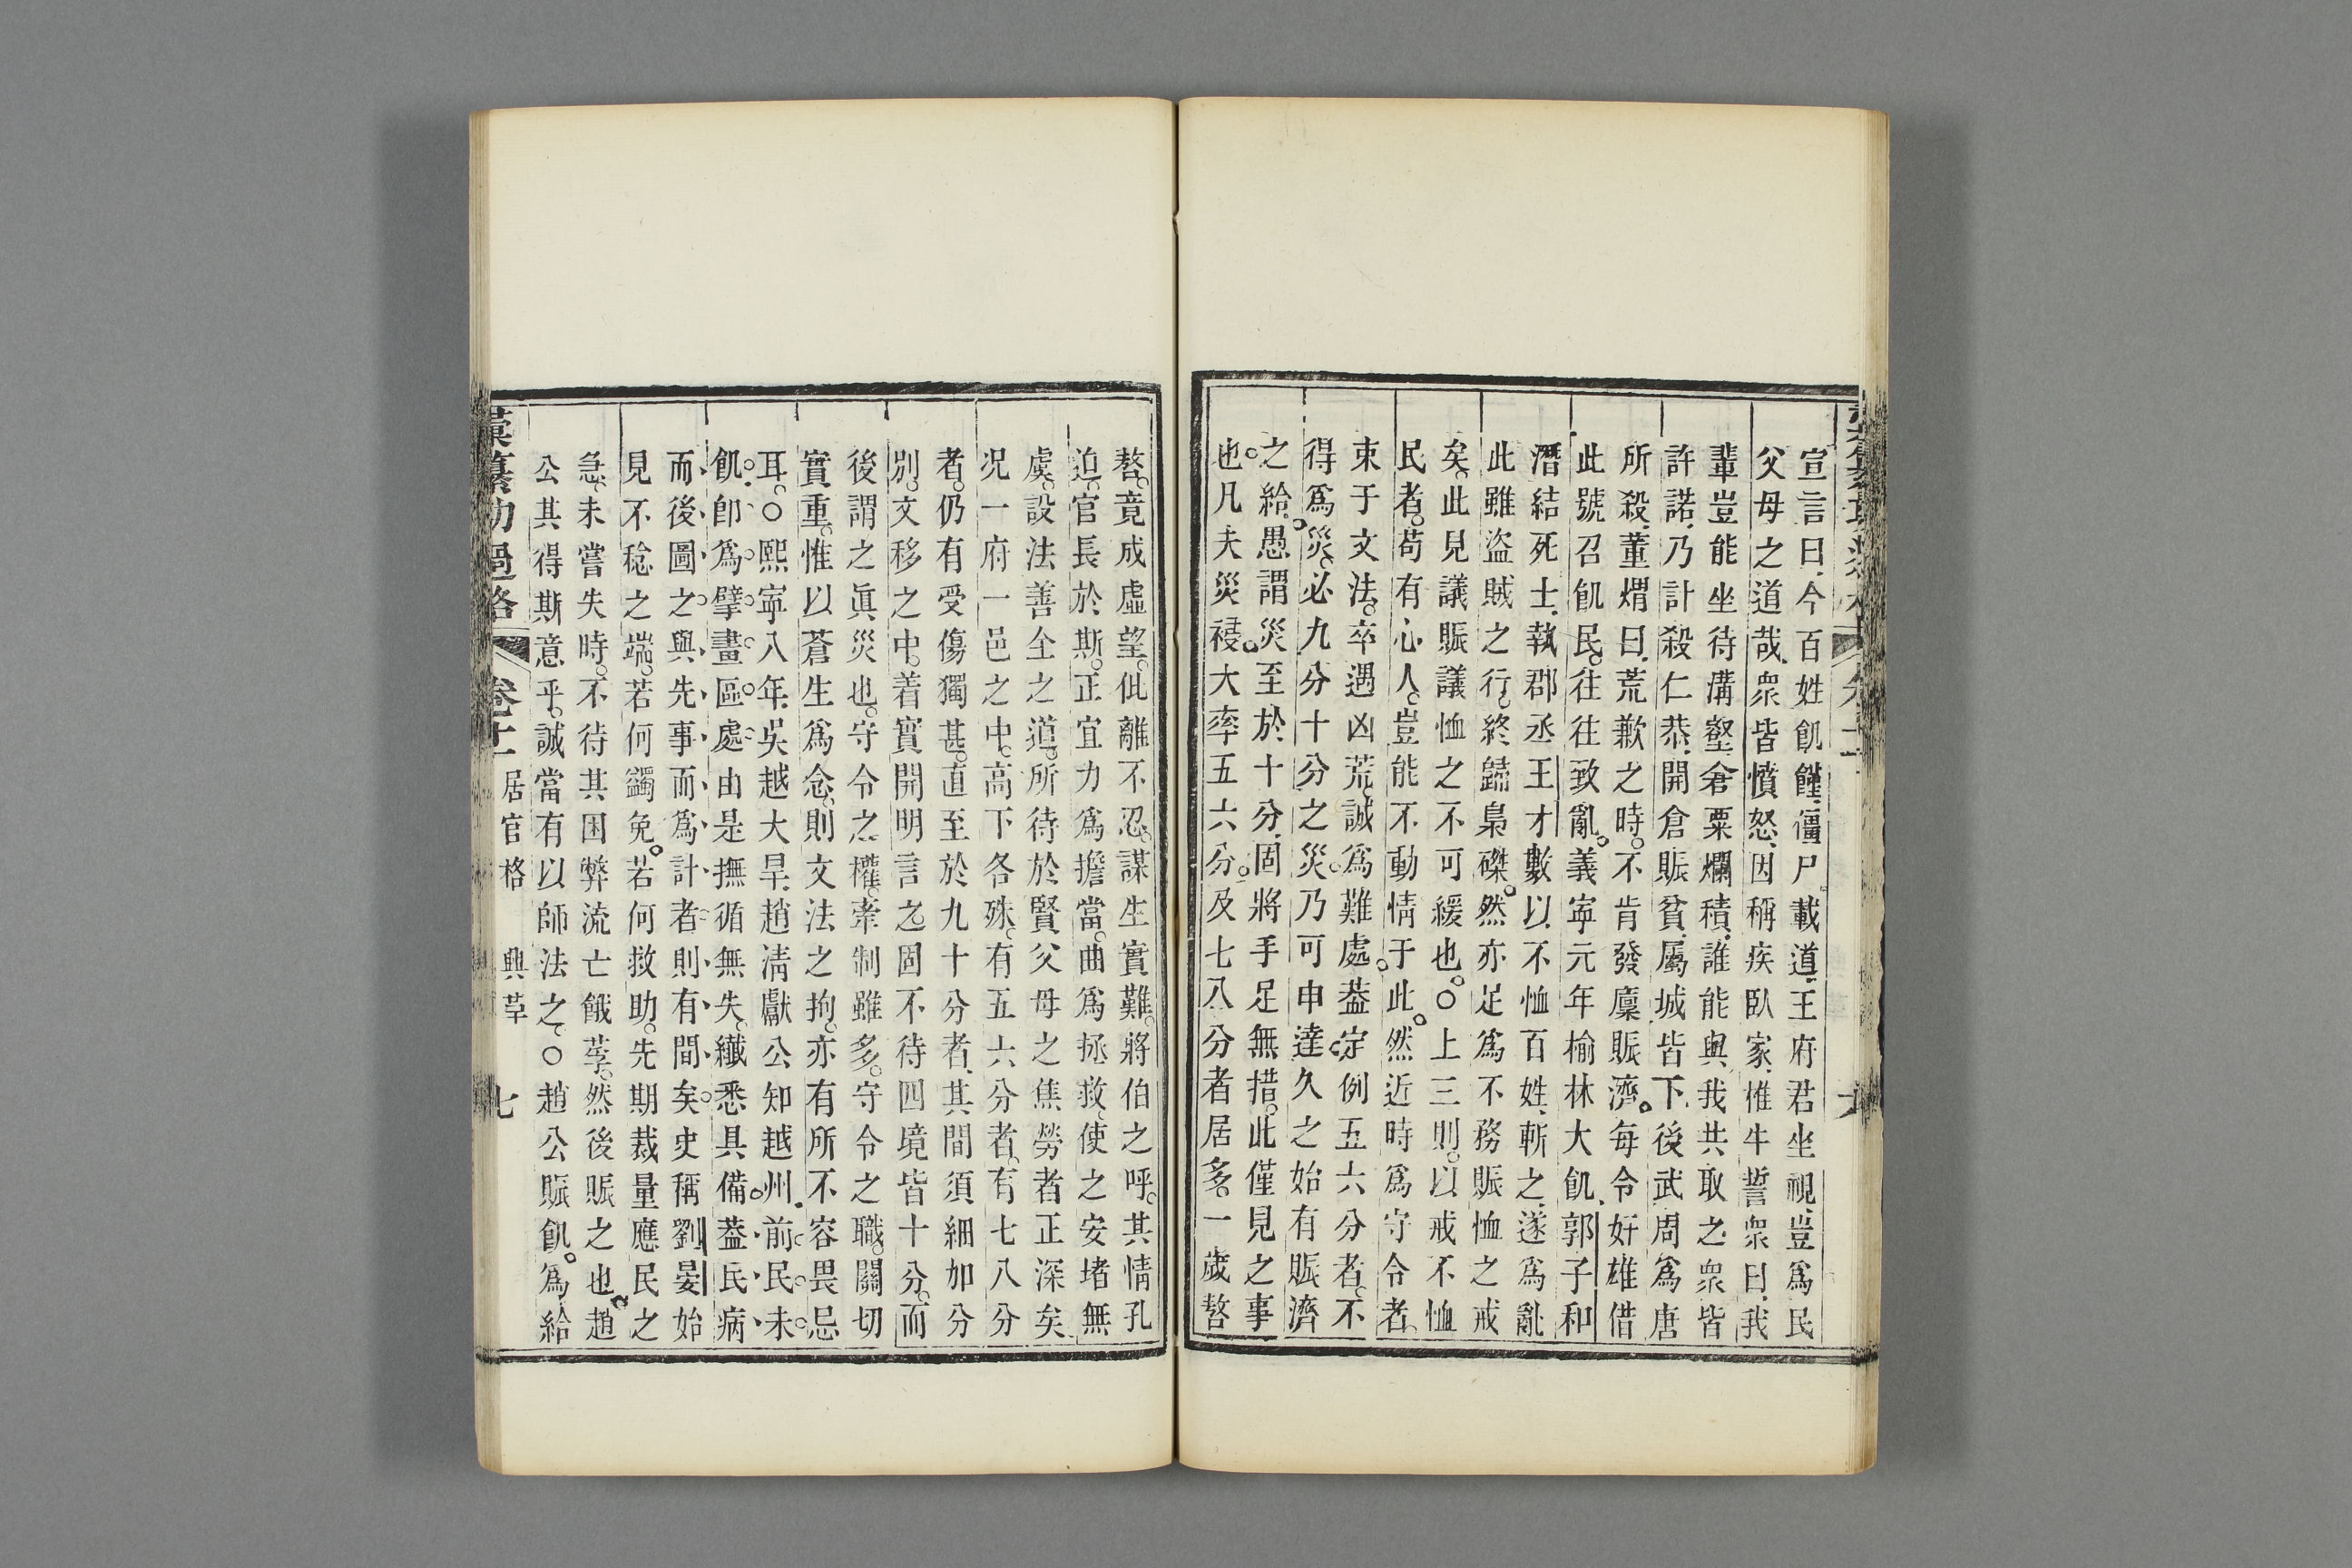 宣言曰今百姓飢饉僵尸載道王府君坐視豈爲民
父母之道哉衆皆憤怒因稱疾臥家椎牛誓衆曰我
輩豈能坐待溝壑倉粟爛積誰能與我共取之衆皆
許諾乃計殺仁恭開倉賑貧屬城皆下後武周爲唐
所殺董煟曰荒歉之時不肯發廩賑濟每令奸雄借
此號召飢民往往致亂義寧元年榆林大飢郭子和
潛結死士執郡丞王才數以不恤百姓斬之遂爲亂
此雖盜賊之行終歸梟磔然亦足爲不務賑恤之戒
矣此見議賑議恤之不可緩也○上三則以戒不恤
民者苟有心人豈能不動情于此然近時爲守令者
束于文法卒遇凶荒誠爲難處葢定例五六分者不
得爲災必九分十分之災乃可申達久之始有賑濟
之給愚謂災至於十分固將手足無措此僅見之事
也凡夫災祲大率五六分及七八分者居多一歲嗸
嗸竟成虛望仳離不忍謀生實難將伯之呼其情孔
迫官長於斯正宜力爲擔當曲爲拯救使之安堵無
虞設法善全之道所待於賢父母之焦勞者正深矣
况一府一邑之中高下各殊有五六分者有七八分
者仍有受傷獨甚直至於九十分者其間須細加分
別文移之中着實開明言之固不待四境皆十分而
後謂之眞災也守令之權牽制雖多守令之職關切
實重惟以蒼生爲念則文法之拘亦有所不容畏忌
耳○熙寧八年吳越大旱趙清獻公知越州前民未
飢卽爲擘畫區處由是撫循無失纖悉具備葢民病
而後圖之與先事而爲計者則有間矣史稱劉晏始
見不稔之端若何蠲免若何救助先期裁量應民之
急未嘗失時不待其困弊流亡餓莩然後賑之也趙
公其得斯意乎誠當有以師法之○趙公賑飢爲給
彙纂功過格 卷十一 居官格 興革 七